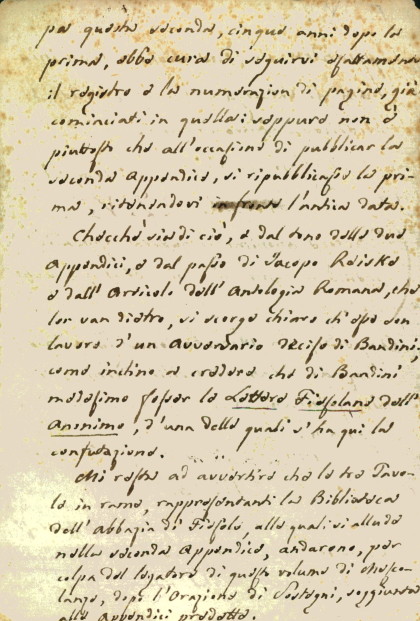 pa questa seconda, cinque anni dopo la
prima, ebbe cura di seguirvi esattamente
il registro e la numerazion di pagine, già
cominciati in quella: seppure non è
piuttosto che all'occasione di pubblicar la
seconda Appendice, si ripubblicasse la pri-
ma, ritenendovi in fronte l'antica data.
Checchè sia di ciò, e dal tono delle due
Appendici, e dal passo di Jacopo Reiske
e dall'Articolo dell'Antologia Romana, che
lor van dietro, si scorge chiaro ch'esse son
lavoro d'un Avversario deciso di Bandini;
come inclino a credere che di Bandini
medesimo fosser le Lettere Fiesolane dell'
Anonimo, d'una delle quali s'ha qui la
confutazione.
Mi resta ad avvertire che le tre Tavo-
le in rame, rappresentanti la Biblioteca
dell'Abbazia di Fiesole, alle quali si allude
nella seconda Appendice, andarono, per
colpa del legatore di questo volume di
lanze, dopo l'Orazione di Sostegni, soggiunta
alle Appendici predette.